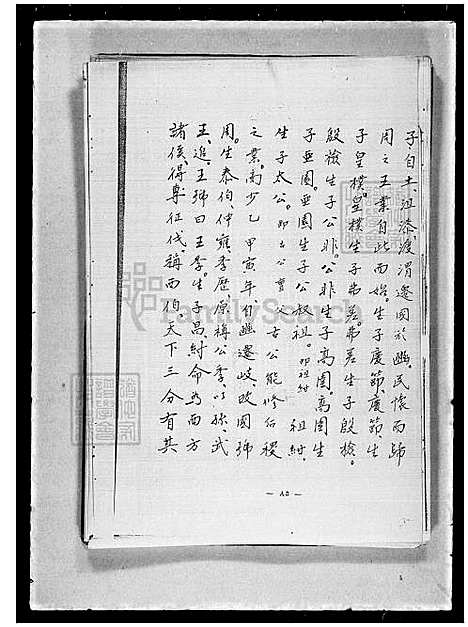 子自土、沮漆、渡渭遷國於豳。民懷而歸
周之王業自此而始。生子慶節、慶節、生
子皇樸。皇樸生子弗差。弗差生子殷檢。
殷檢生子公非。公非生子高圉。高圉生
子亜圉。亜圉生子公叔祖。叩祖紂 祖紂、
生子太公。即古公亶父古公能修后稷
之業、商少乙甲寅年、自豳遷岐、改國號
周。生泰伯、仲雍、季歷、原稱公季、以孫武
王、追、王號曰王季。生子昌紂命為西方
諸侯、得專征伐、稱西伯、天下三分有其
FamilySearch